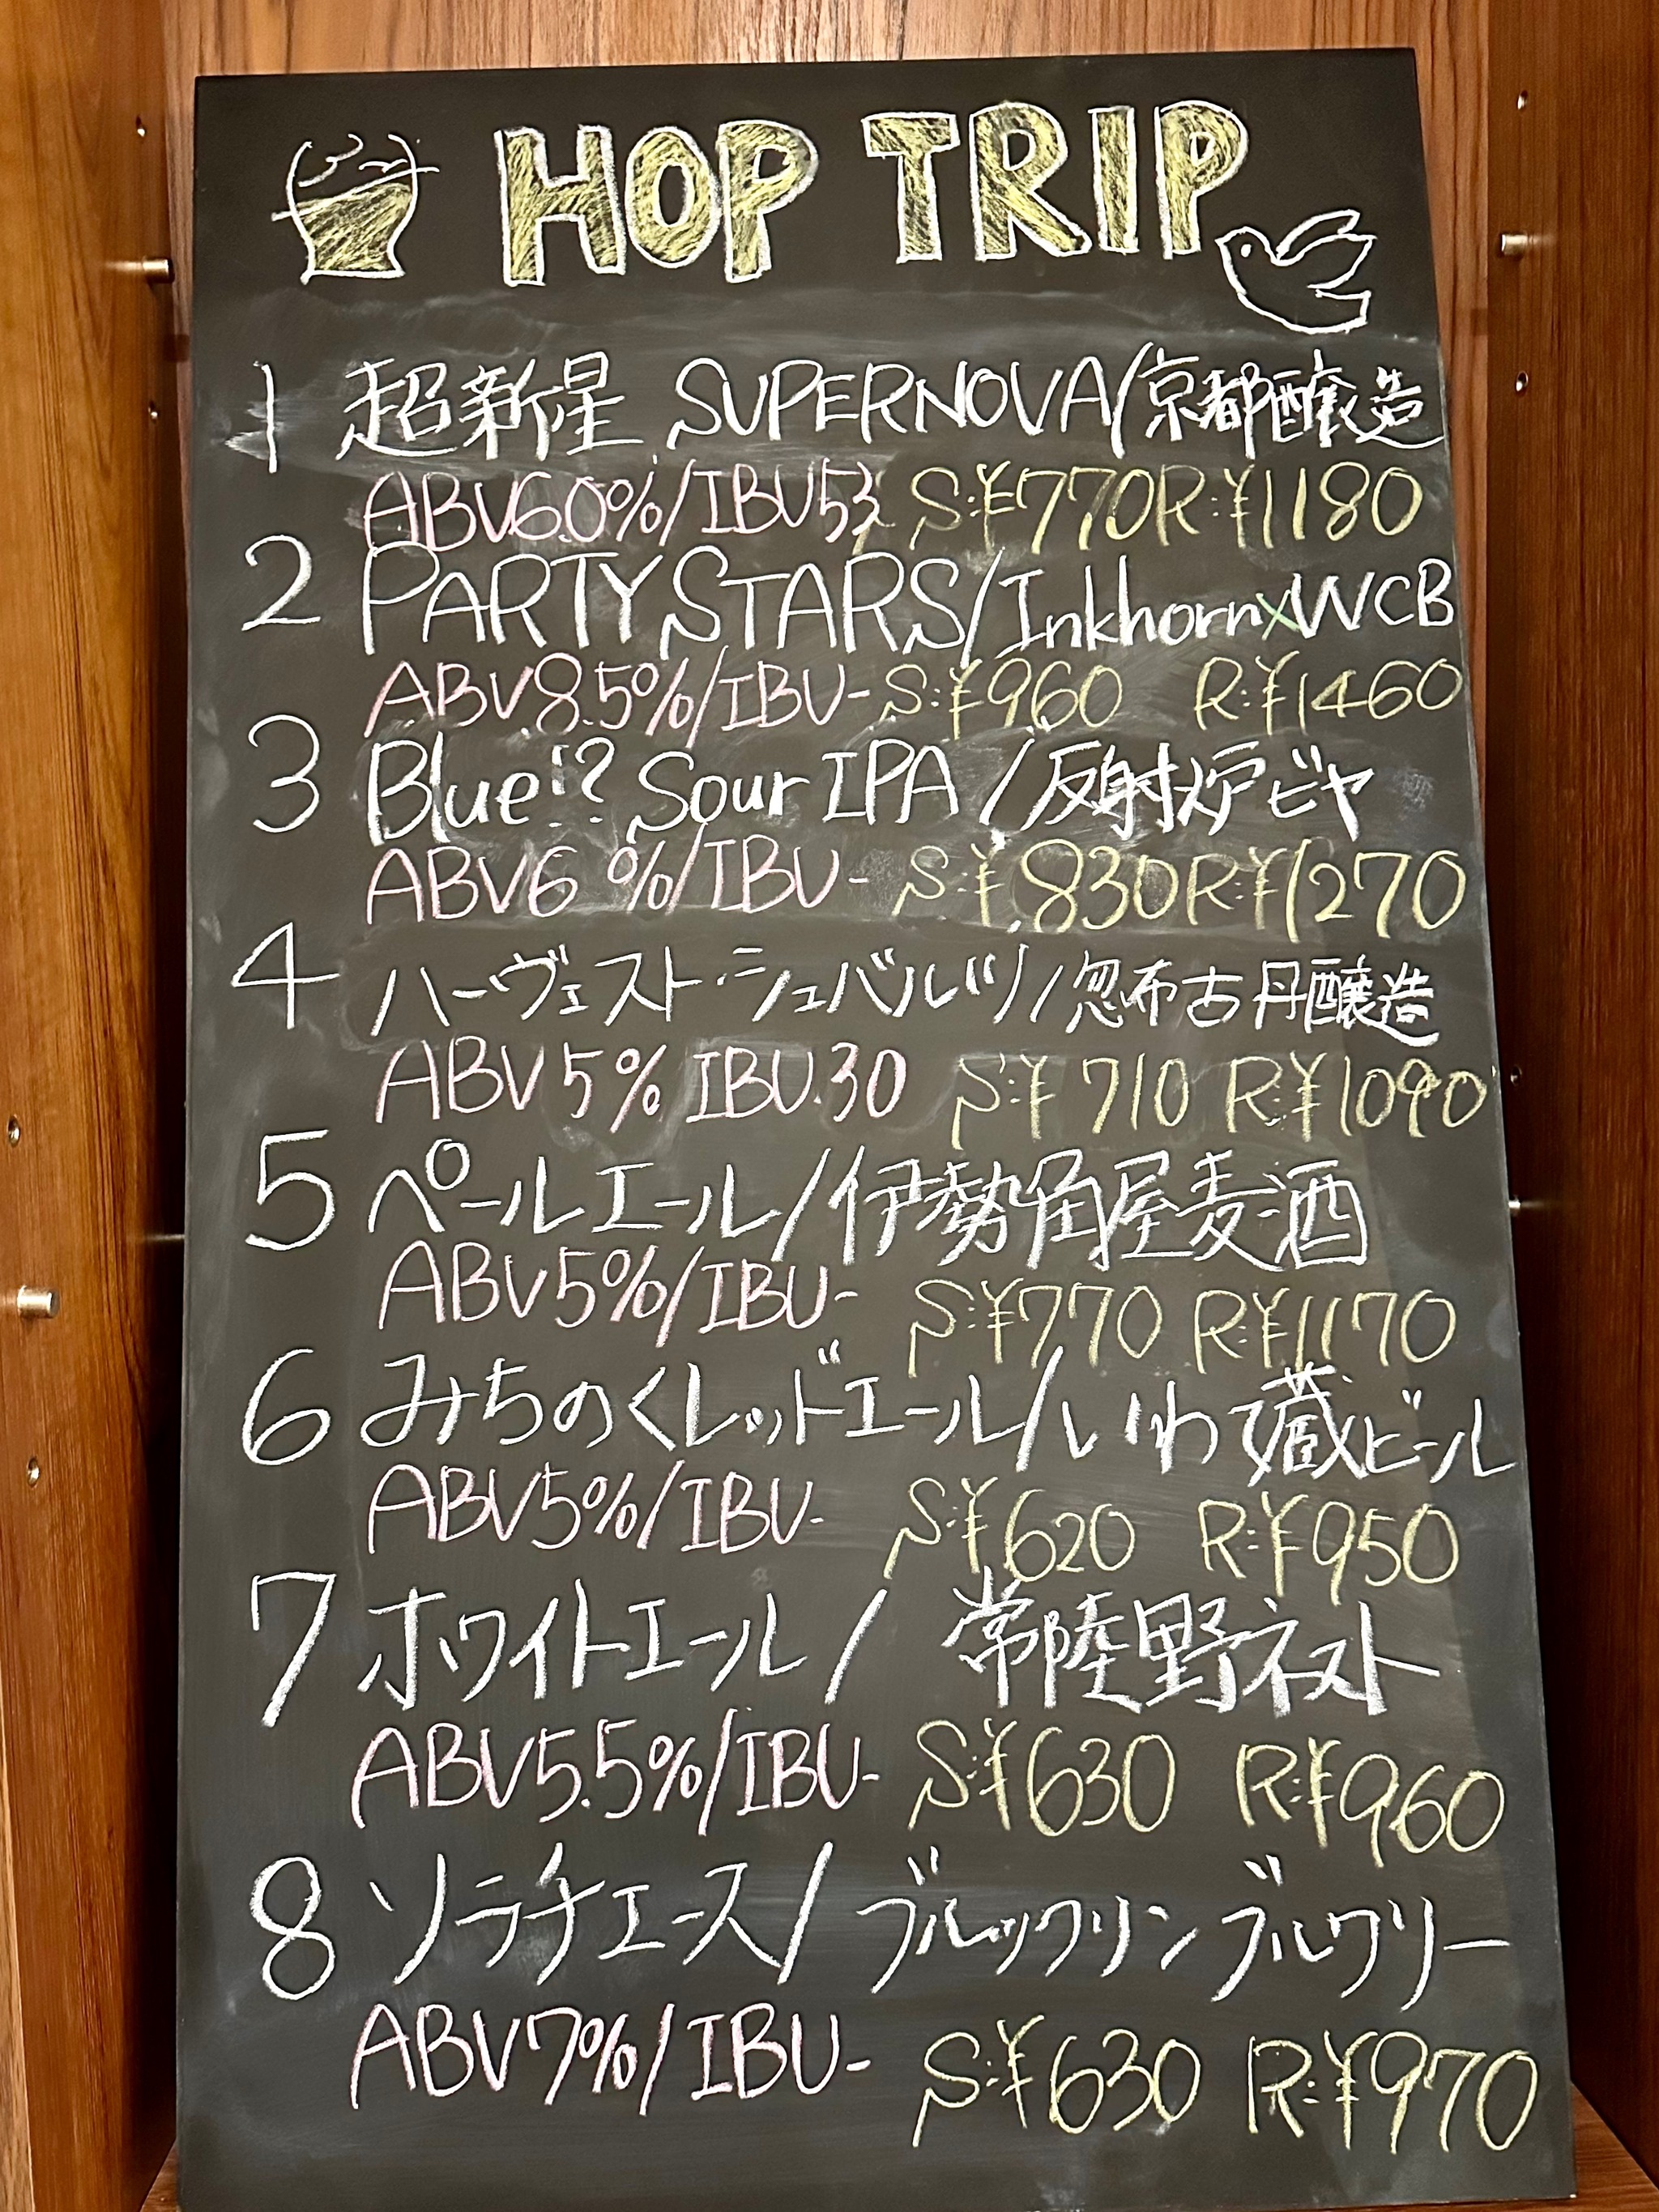 HOP TRIP
1 超新星 SUPERNOVA/京都醸造
ABV6.0%/IBU53 S:¥770 R:¥1180
2 PARTY STARS/Inkhorn×WCB
ABV8.5%/IBU- S:¥960 R:¥1460
3 Blue!? Sour IPA/反射炉ビヤ
ABV6%/IBU- S:¥830 R:¥1270
4 ハーヴェスト・シュバルツ/忽布古丹醸造
ABV5% IBU.30 S:¥710 R:¥1090
5 ペールエール/伊勢角屋麦酒
ABV5%/IBU- S:¥770 R:¥1170
6 みちのくレッドエール/いわて蔵ビール
ABV5%/IBU- S:¥620 R:¥950
7 ホワイトエール/常陸野ネスト
ABV5.5%/IBU- S:¥630 R:¥960
8 ソラチエース/ブルックリンブルワリー
ABV7%/IBU- S:¥630 R:¥970